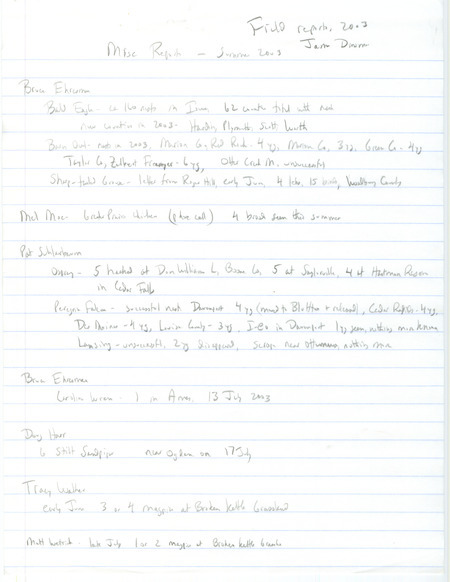 Field reports, 2003
Misc Reports - Summer 2003
Bruce Ehresman
Bald Eagle - nests in Iowa, 62 counties total with nest
new counties in 2003 - Hardin, Plymouth, Scott, Worth
Barn Owl - nests in 2003, Marion Co, Red Rock - 4 yg, Marion Co, 3 yg, Green Co - 4 yg
Taylor Co, 6 yg, Other unsuccessful
Sharp-tailed Grouse - letter from Hill, early June, 4 leks, 15 birds, Woodbury County
Mel Moe - Greater Prairie Chicken (phone call) 4 broods seen this summer
Pat Schlarbaum
Osprey - 5 hacked at Don Williams L, Boone Co, 5 at Saylorville, 4 at Hartman Reserve
in Cedar Falls
Peregrine Falcon - successful nest Davenport 4 yg (moved to Bluffton + released), Cedar Rapids - 4 yg,
Des Moines - 4 yg, Louisa County - 3 yg, I-80 in Davenport 1 yg seen, nothing more known
Lansing - unsuccessful, 2 yg disappeared, scrape near Ottumwa, nothing more
Bruce Ehresman
Carolina Wren - 1 in Ames, 13 July 2003
Doug Harr
6 Stilt Sandpiper near Ogden on 17 July
Tracy
early June 3 or 4 magpie at Broken Kettle Grassland
Matt - late July 1 or 2 magpie at Broken Kettle